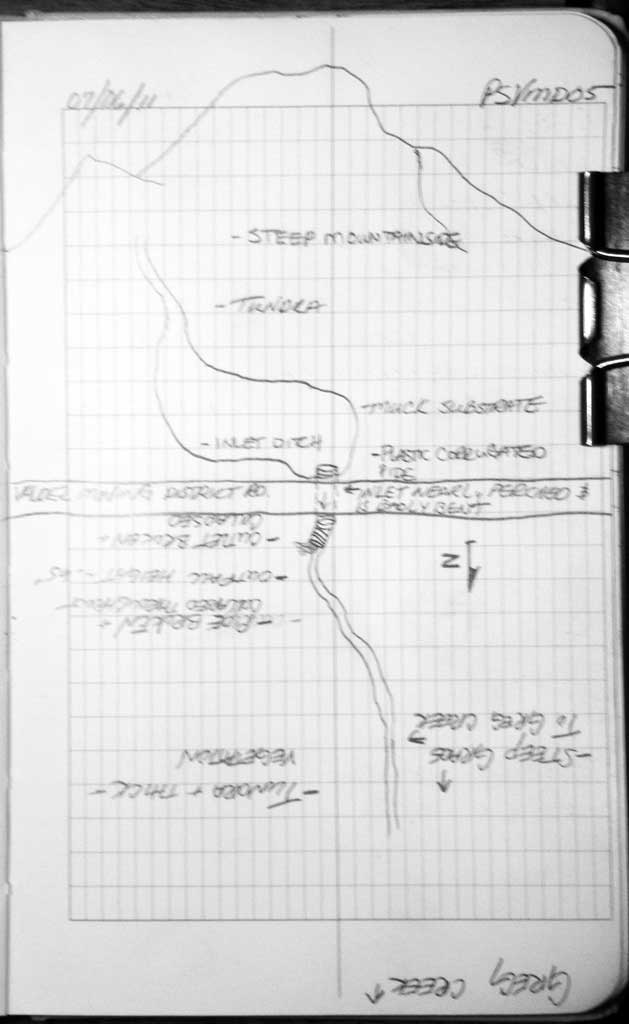 07/06/11
PSVMD05
- STEEP MOUNTAINSIDE
- TUNDRA
- MUCK SUBSTRATE
- INLET DITCH
- PLASTIC CORRUGATED
PIPE
VALDEZ MINING DISTRICT RD.
← INLET NEWLY PERCHED &
IS BADLY BENT
- OUTLET BROKEN +
COLLAPSED
- OUTFALL HEIGHT ~
- PIPE BROKEN +
COLLAPSED THROUGHOUT
N
- STEEP GRADS
TO GREG CREEK
- TUNDRA + THICK -
VEGETATION
GREG CREEK